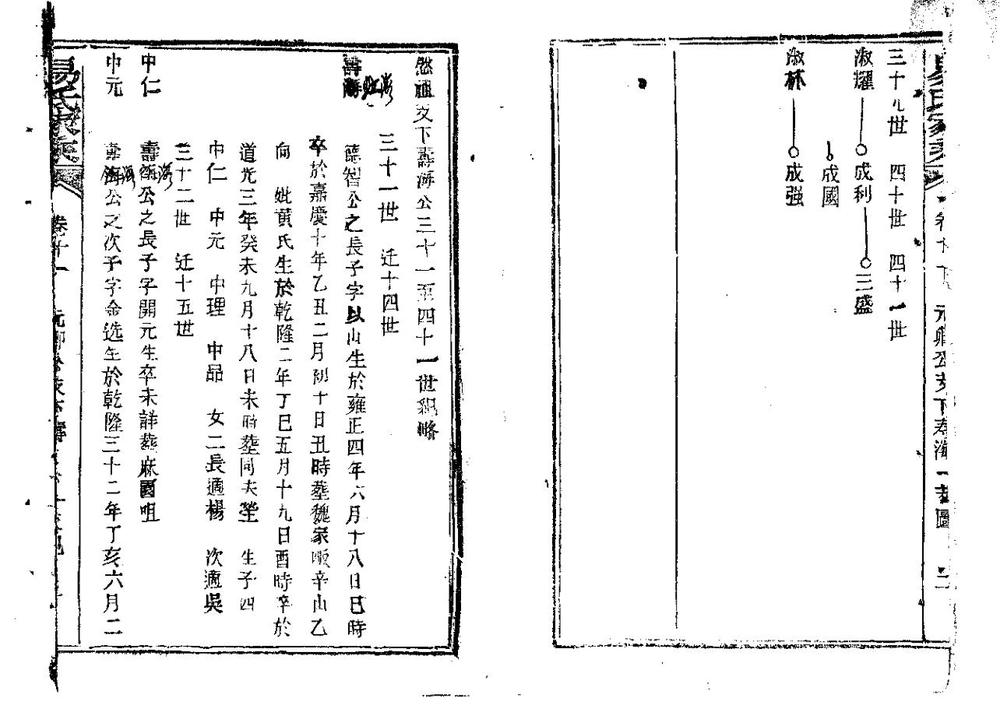 三十九世　四十世　四十一世
淑耀　成利　三盛
成國
淑林　成强
支下壽海公三十一至四十一世紀略
三十一世　迁十四世
壽海　德智公之長子字以山生於雍正四年六月十八日巳時
卒於嘉慶十年乙丑二月初十日丑時葬魏家畈辛山乙
向　妣黄氏生於乾隆二年丁巳五月十九日酉時卒於
道光三年癸未九月十八日未時葬同夫塋　生子四
中仁　中元　中理　中品　女二長適楊　次適吳
三十二世　迁十五世
中仁　壽海公之長子字開元生卒未詳葬麻園咀
中元　壽海公之次子字金选生於乾隆三十二年丁亥六月二
易氏家乘　卷廿一